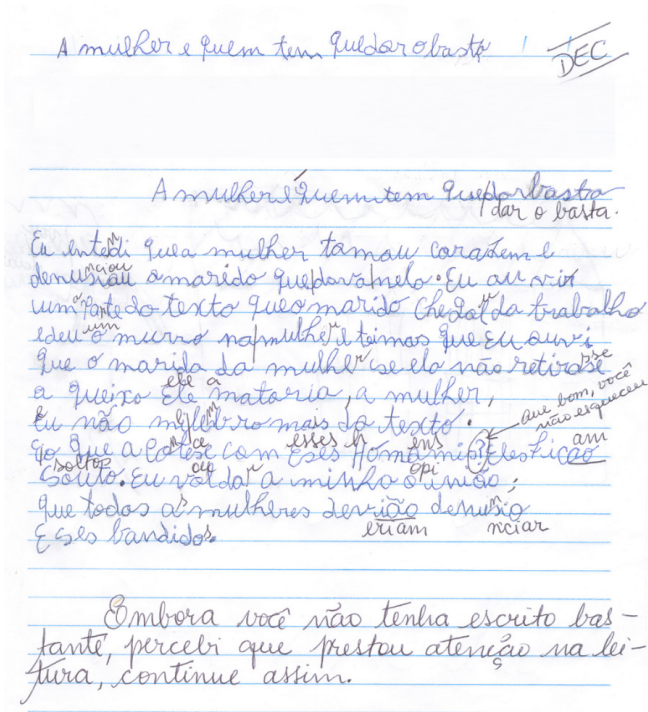 A mulher e quem tem quedar obasta
DEC
A mulher é quem tem que/dar basta
dar o basta.
Eu entedi quea mulher tamou corazem e
nciou
denusiau omarido que/dava/nelo. Eu ouvir
uma parte do texto queo marido chegou da trabalho
um
edeu o murro na/mulher e teimos que Eu ouvi
que o marida da mulher se ela não retirase
sse
ele a
a queixo Ele mataria, a mulher,
que bom, você
não esqueceu
Eu não mi lembro mais do texto.
esses
ens
am
Go que acontese com Eses Homems? Eles ficao
soltos
ou
opi
Souto. Eu vol dar a minha o union;
que todos as mulheres devrião denunsio
eriam
nciar
Eses bandidos.
Embora você não tenha escrito bas-
tante, percebi que prestou atenção na lei-
tura, continue assim.